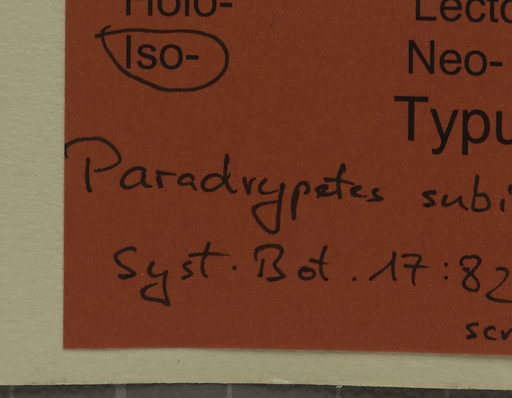 Holo- Lecto
Iso- Neo-
Typu
Paradrypetes subi
Syst. Bot. 17:82
scr